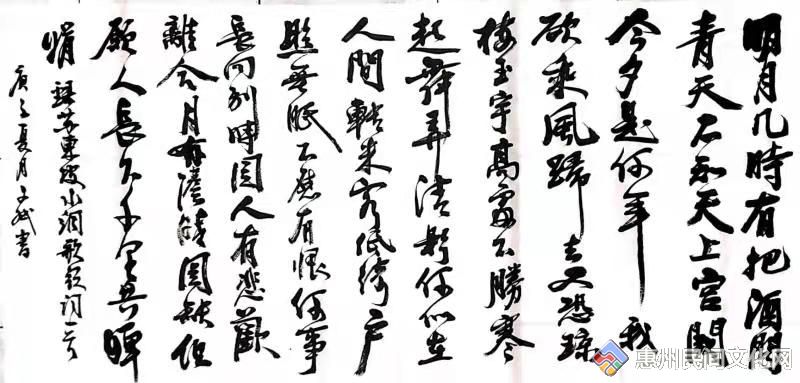 明月几時有把酒問
青天不知天上宫闕
今夕是何年我
欲乘風歸去又恐琼
樓玉宇高處不勝寒
起舞弄清影何似在
人間轉朱阁低绮户
照無眠不應有恨何事
長向别時圆人有悲歡
離合月有陰晴圆缺但
願人長久千里共嬋
娟 録苏東坡水调歌頭词一首
庚子夏月書
惠州民间文化网